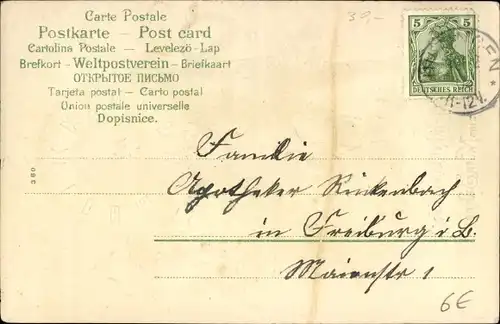 Carte Postale
Postkarte — Post card
Cartolina Postale — Levelezö-Lap
Brefkort - Weltpostverein - Briefkaart
ОТКРЫТОЕ ПИСЬМО
Tarjeta postal — Carto postal
Union postale universelle
Dopisnice.
39.-
5 5
DEUTSCHES REICH
EN *
11-12V.
360
Familie
Apotheker Rinkenbach
in Freiburg i. B.
Maienstr 1
6€